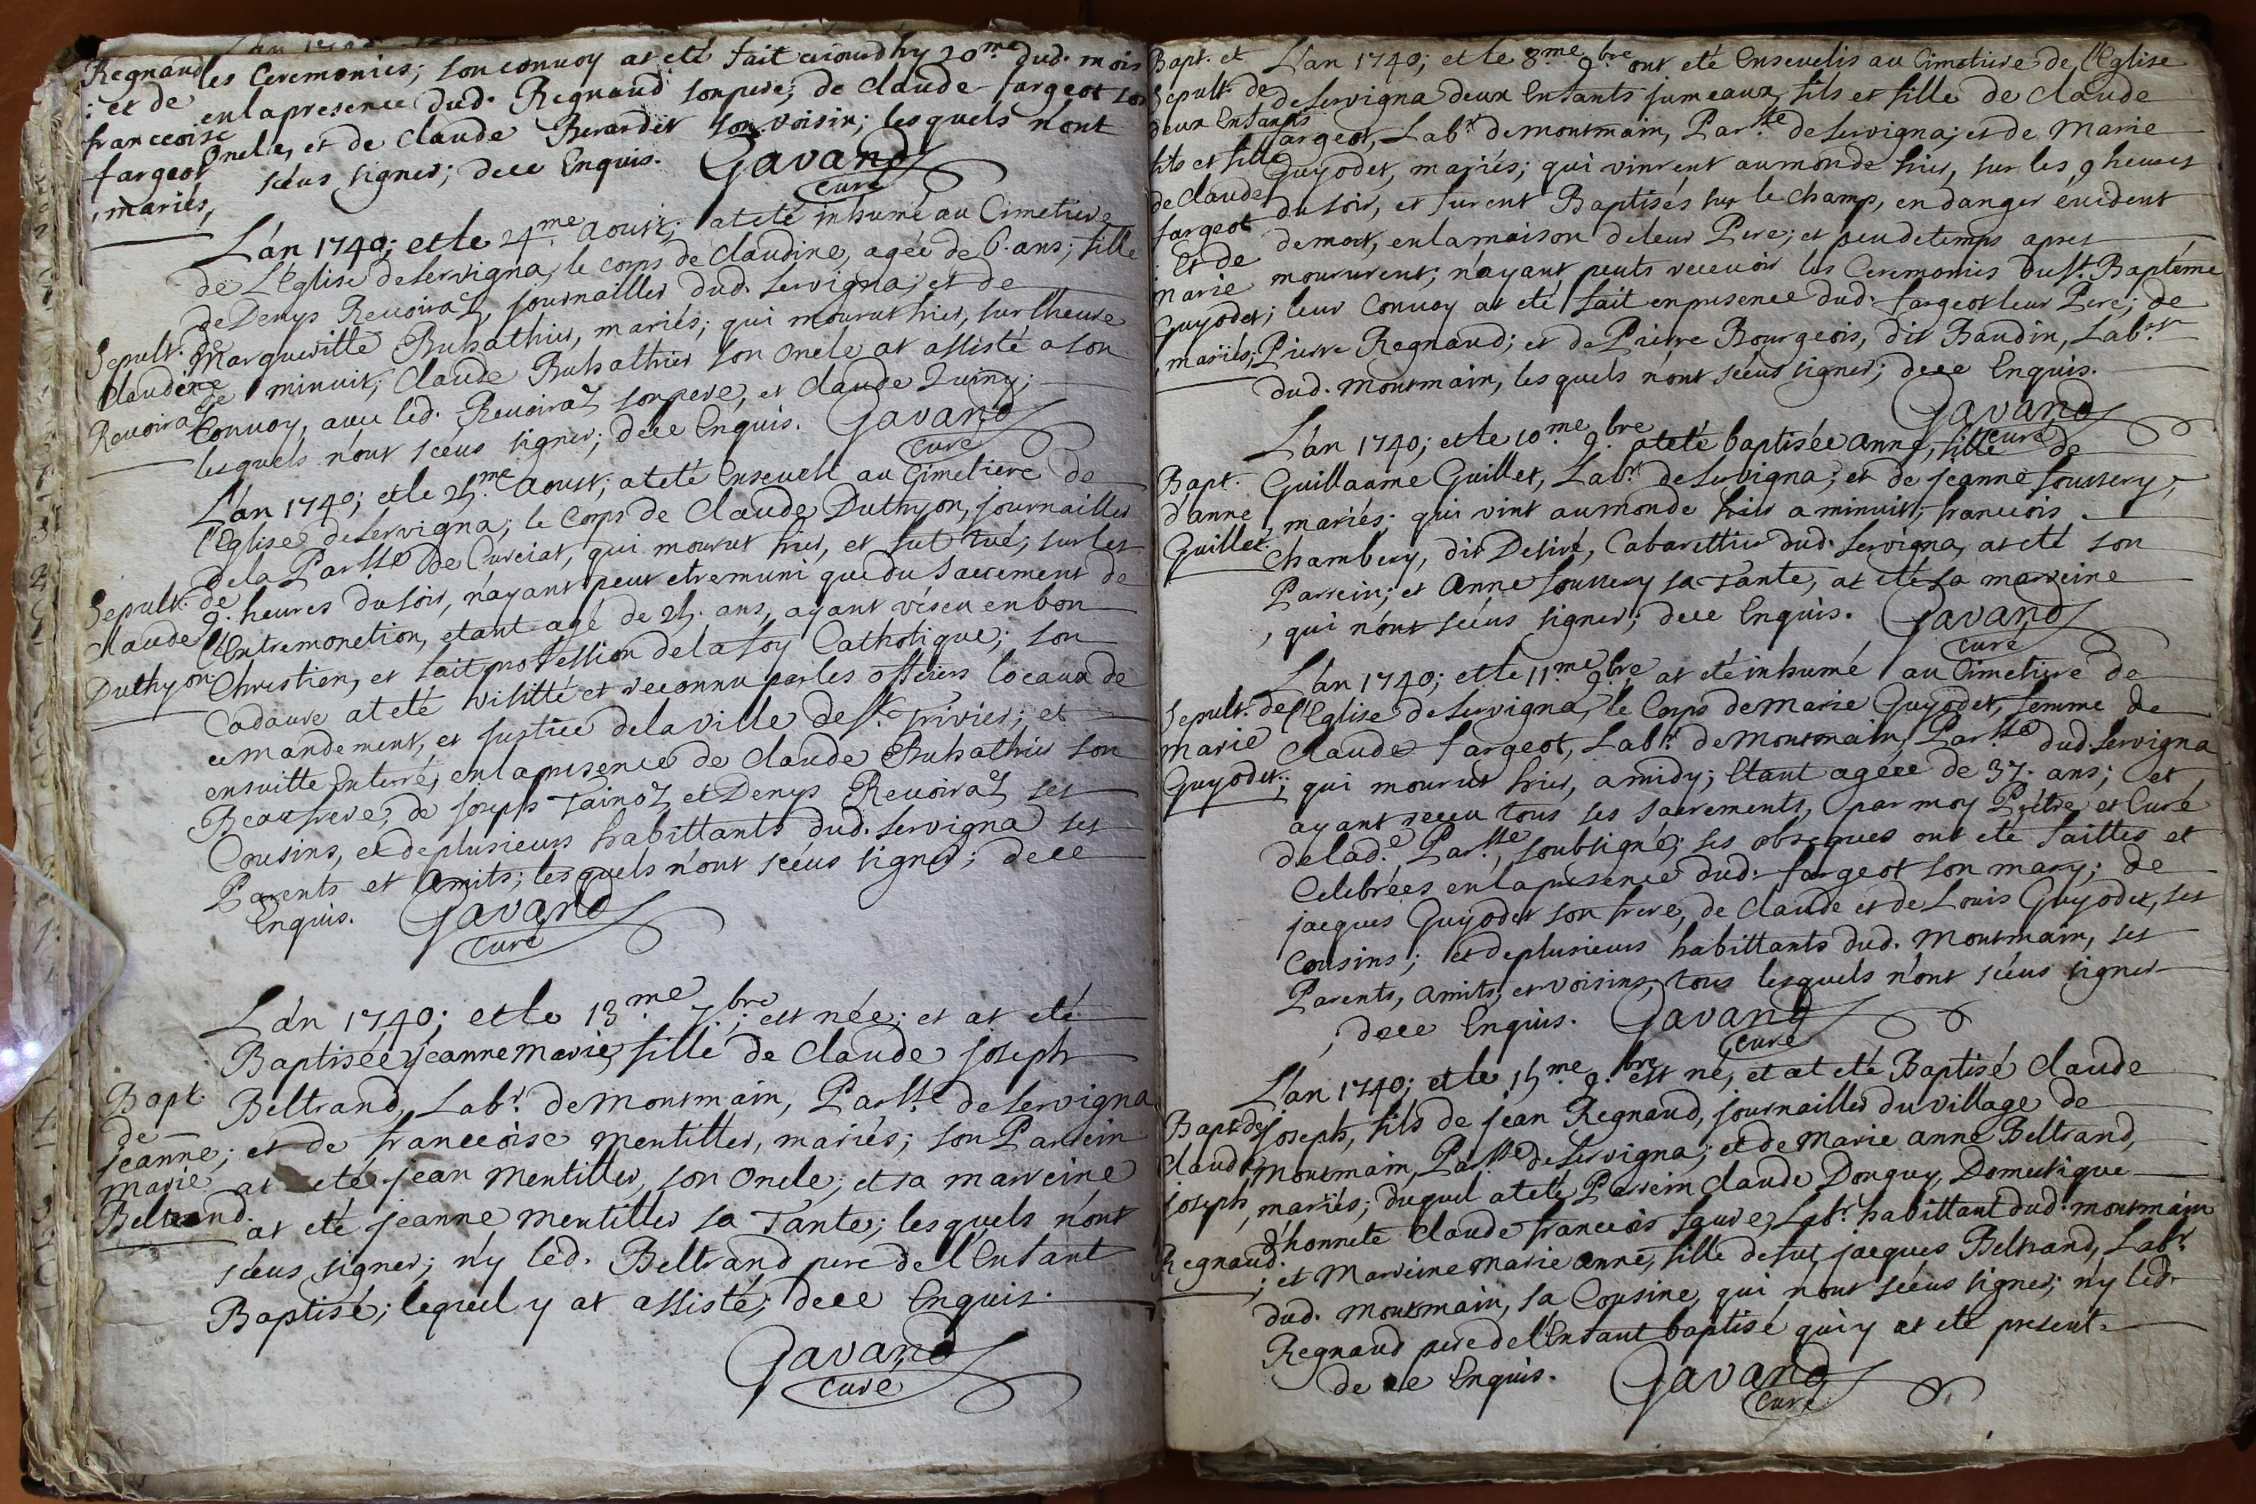 Regnaud
; et de
francoise
fargeot
, mariés,
les Ceremonies; son convoy at eté fait aujourdhy 20.me dud. mois
en la presence dud. Regnaud son pere; de Claude fargeot son
Oncle, et de Claude Berardet son voisin; lesquels n'ont
scéus signer; dece Enquis. Gavand
curé
L'an 1740; et le 24.me aoust; at eté inhumé au Cimetiere
de L'Eglise de Servigna, le corps de Claudine, agée de 6. ans; fille
de Denys Revoiraz, journaillier dud. Servigna; et de
Margueritte Buhathier, mariés; qui mourut hier, sur l'heure
de minuit; Claude Buhathier son Oncle at assisté a son
Convoy, avec led. Revoiraz son pere, et Claude Quiny;
lesquels n'ont scéus signer; dece Enquis. Gavand
curé
Sepult. de
Claudine
Revoiraz
L'an 1740; et le 25.me aoust; at eté Enseveli au Cimetiere de
l'Eglise de Servigna; le Corps de Claude Duthyon, journaillier
de la Par.sse de Curciat, qui mourut hier, et fut tué; sur les
9. heures du soir, n'ayant peut etre muni que du Sacrement de
l'Entremonction, etant agé de 25. ans, ayant véscu en bon
Christien, et fait profession de la foy Catholique; son
Cadavre at eté visitté et reconnu par les officiers locaux de
ce mandement, et justice de la ville de St. Trivier; et
ensuitte Enterré, en la presence de Claude Buhathier son
Beaufrere, de joseph Tainoz et Denys Revoiraz ses
Cousins, et de plusieurs habittants dud. Servigna ses
Parents et Amits; lesquels n'ont scéus signer; dece
Enquis. Gavand
curé
Sepult. de
Claude
Duthyon
L'an 1740; et le 13.me 7.bre; est née; et at eté
Baptisée jeanne marie, fille de Claude joseph
Beltrand, Lab.r de Montmain, Par.sse de Servigna
; et de francoise Mentillier, mariés; son Parrein
at eté jean Mentillier, son Oncle; et sa marreine
at eté jeanne Mentillier sa Tante; lesquels n'ont
scéus signer; n'y led. Beltrand pere de l'Enfant
Baptisé; lequel y at assisté; dece Enquis.
Gavand
curé
Bapt.
de
jeanne
marie
Beltrand.
Bapt. et
Sepult. de
deux Enfants
fils et fille
de Claude
fargeot
; Et de
Marie
Guyodet;
, mariés;
L'an 1740; et le 8.me 9.bre ont eté Ensevelis au Cimetiere de l'Eglise
de Servigna deux Enfants jumeaux, fils et fille de Claude
fargeot, Lab.r de Montmain, Par.sse de Servigna; et de Marie
Guyodet, mariés; qui vinrent au monde hier, sur les 9 heures
du soir, et furent Baptisés sur le champ, en danger évident
de mort, en la maison de leur Pere; et peu de temps apres
moururent; n'ayant peuts recevoir les Ceremonies du St. Baptéme
; leur Convoy at eté fait en presence dud. fargeot leur Pere; de
Pierre Regnaud; et de Pierre Bourgeois, dit Baudin, Lab.rs
dud. Montmain, lesquels n'ont scéus signer; dece Enquis.
Gavand
curé
L'an 1740; et le 10.me 9.bre at eté baptisée anne, fille de
Guillaume Guillet, Lab.r de Servigna; et de jeanne soussery;
, mariés; qui vint au monde hier a minuit; francois
Chambery, dit Desiré, Cabarettier dud. Servigna, at eté son
Parrein; et Anne soussery sa Tante, at eté sa marreine
, qui n'ont scéus signer; dece Enquis. Gavand
curé
Bapt.
d'anne
Guillet.
L'an 1740; et le 11.me 9.bre at eté inhumé au Cimetiere de
l'Eglise de Servigna, le Corps de Marie Guyodet, femme de
Claude fargeot, Lab.r de Montmain, Par.sse dud. Servigna
; qui mourut hier, a midy; Etant agéee de 37. ans; et
ayant receu tous ses sacrements, par moy Prétre et Curé
de lad.e Par.sse, soubsigné; ses obseques ont eté faittes et
Celebrées en la presence dud. fargeot son mary; de
jacques Guyodet son frere, de Claude et de Louis Guyodet, ses
Cousins; et de plusieurs habittants dud. Montmain, ses
Parents, Amits, et voisins; tous lesquels n'ont scéus signer
; dece Enquis. Gavand
curé
Sepult. de
Marie
Guyodet;
L'an 1740; et le 15.me 9.bre est né, et at eté Baptisé Claude
joseph, fils de jean Regnaud, journaillier du village de
Montmain, Par.sse de Servigna; et de Marie anne Beltrand,
, mariés; duquel at eté Parrein Claude Donguy, Domestique
d'honnete Claude francois favre, Lab.r habittant dud. montmain
; et Marreine Marie Anne, fille de fut jacques Beltrand, Lab.r
dud. Montmain, sa Cousine, qui n'ont scéus signer; n'y led.
Regnaud pere de l'Enfant baptisé qui y at eté present.
dece Enquis. Gavand
curé
Bapt. de
Claude
joseph
Regnaud.